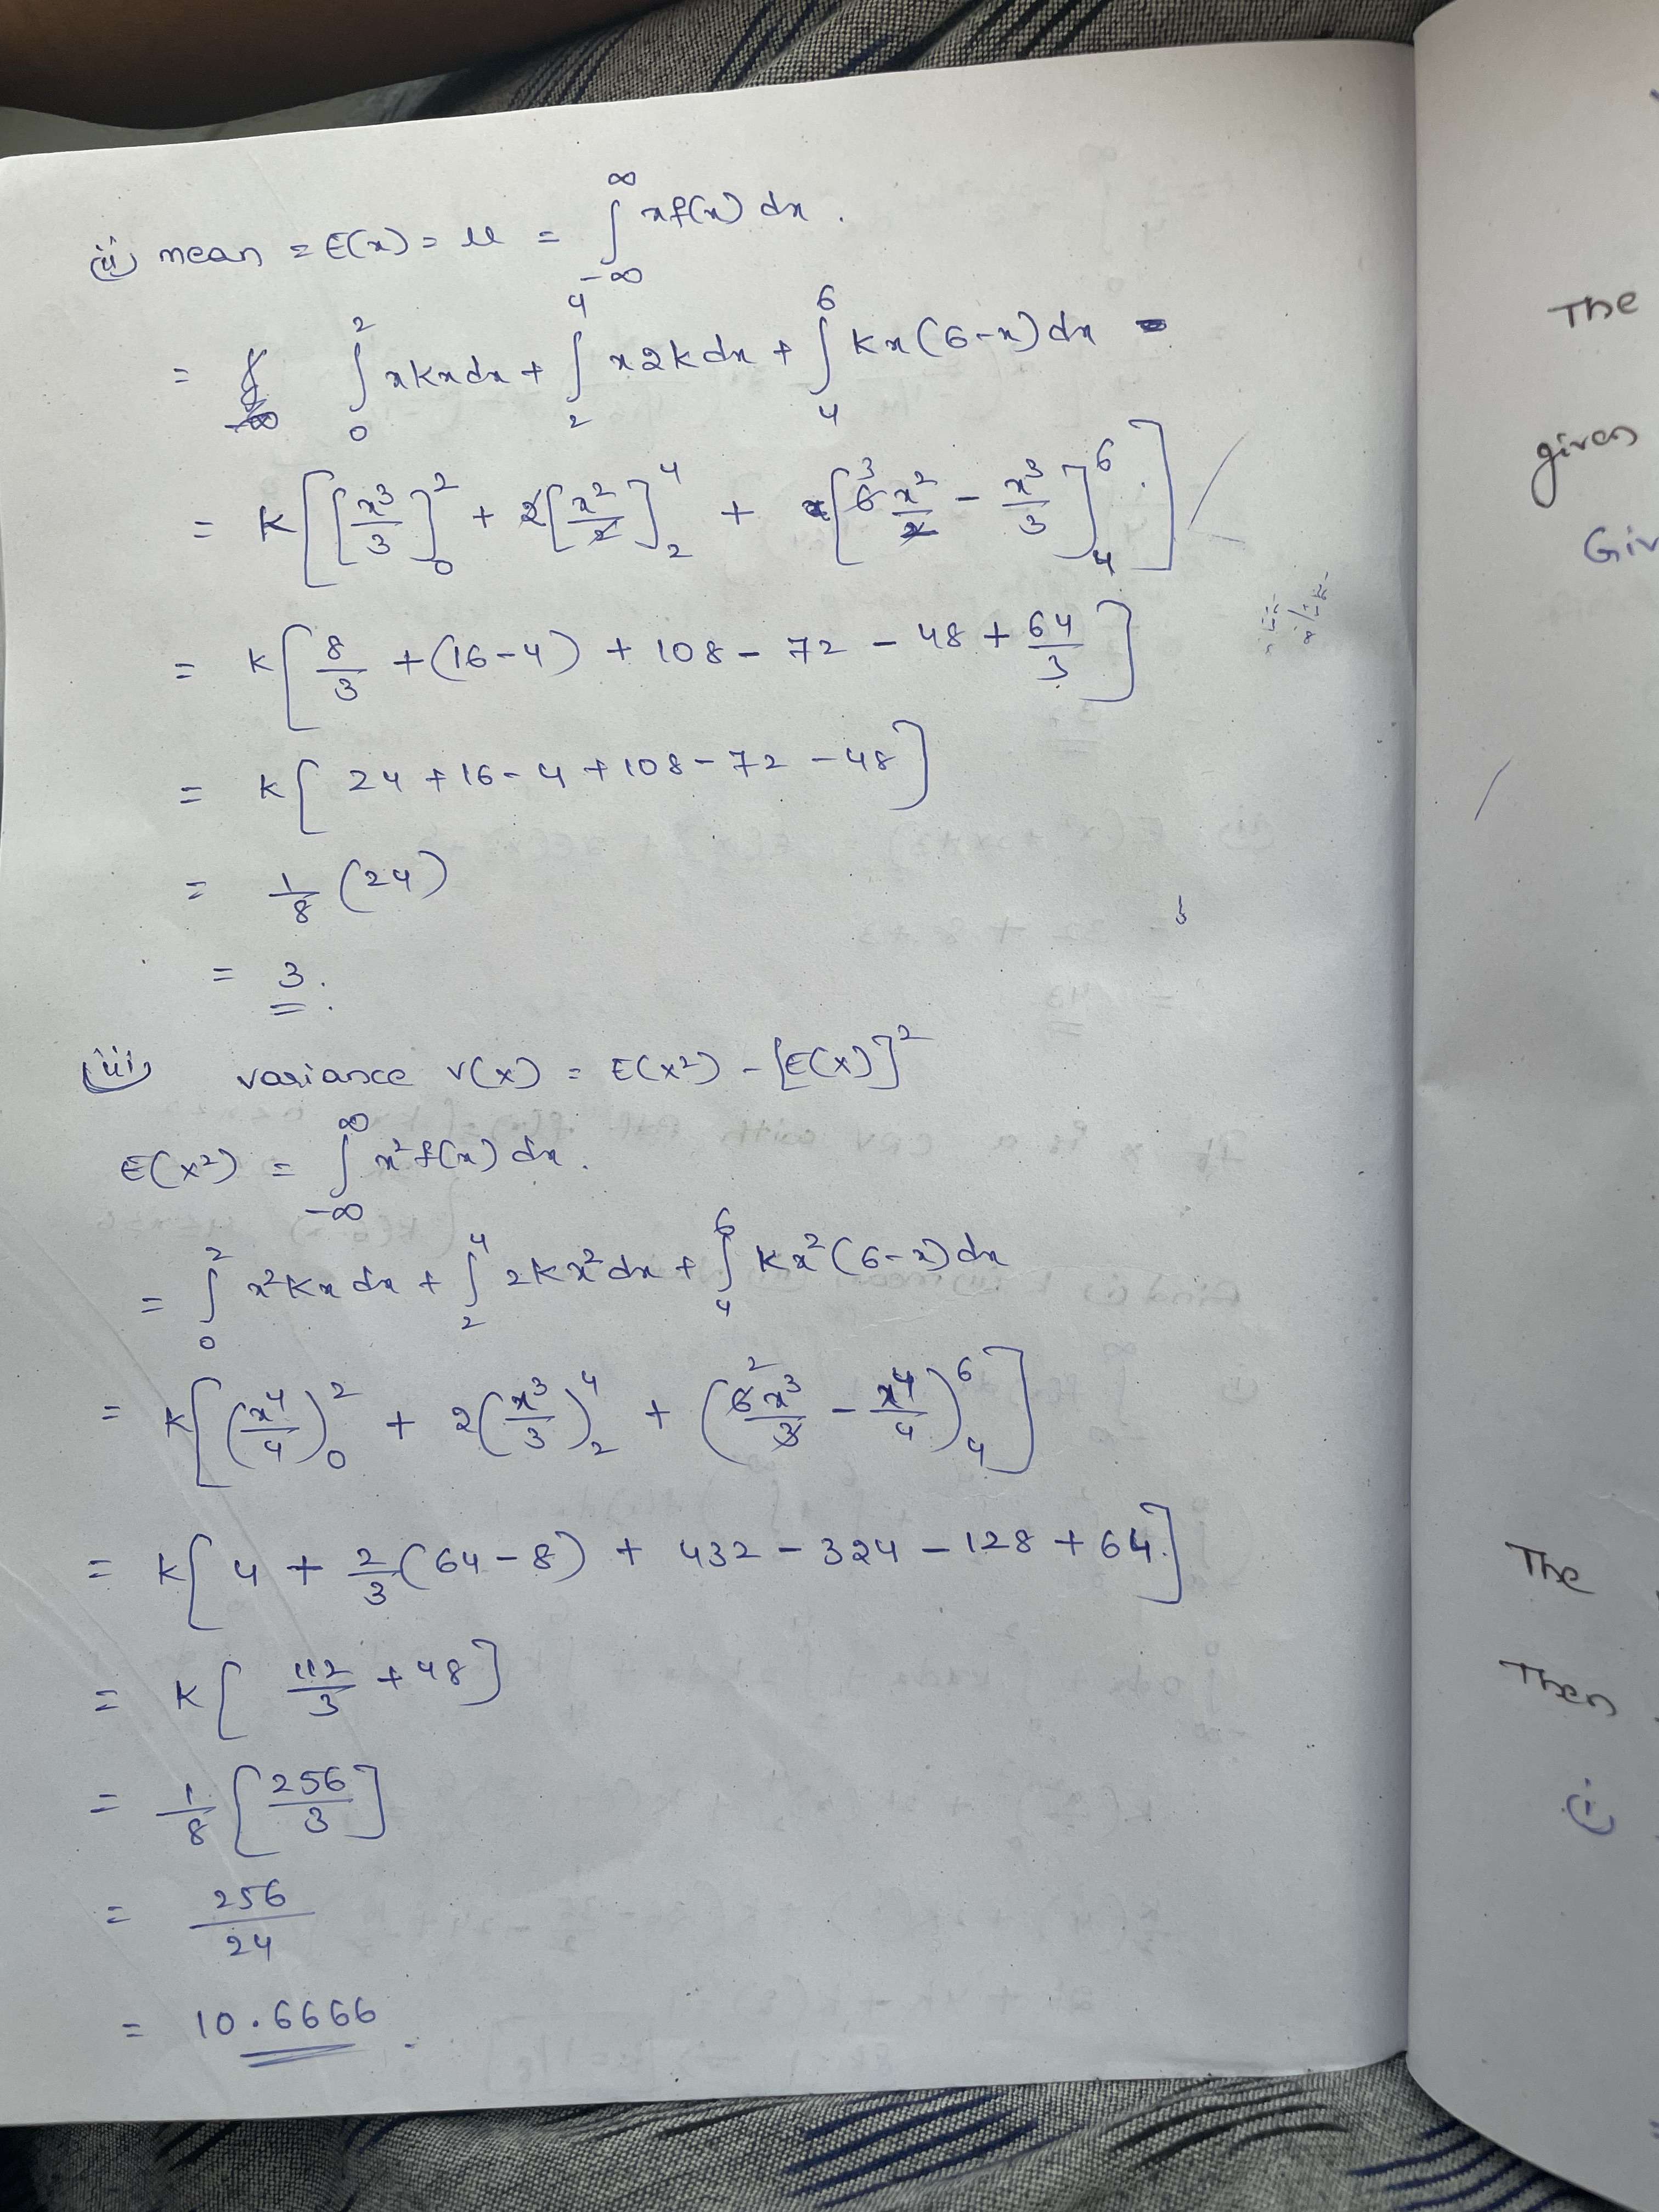 (ii) mean = E(x) = μ = ∫_{-∞}^{∞} x f(x) dx .
= ∫_0^2 x kx dx + ∫_2^4 x 2k dx + ∫_4^6 kx (6-x) dx
= k[[x³/3]_0^2 + 2[x²/2]_2^4 + [6 3 x²/2 - x³/3]_4^6]
= k[8/3 + (16-4) + 108 - 72 - 48 + 64/3]
= k[24 + 16 - 4 + 108 - 72 - 48]
= 1/8 (24)
= 3.
(iii) variance v(x) = E(x²) - [E(x)]²
E(x²) = ∫_{-∞}^{∞} x² f(x) dx.
= ∫_0^2 x² kx dx + ∫_2^4 2k x² dx + ∫_4^6 k x² (6-x) dx
= k[(x⁴/4)_0^2 + 2(x³/3)_2^4 + (6 2 x³/3 - x⁴/4)_4^6]
= k[4 + 2/3 (64-8) + 432 - 324 - 128 + 64.]
= k[112/3 + 48]
= 1/8 [256/3]
= 256/24
= 10.6666
The
given
Giv
The
Then
(i)